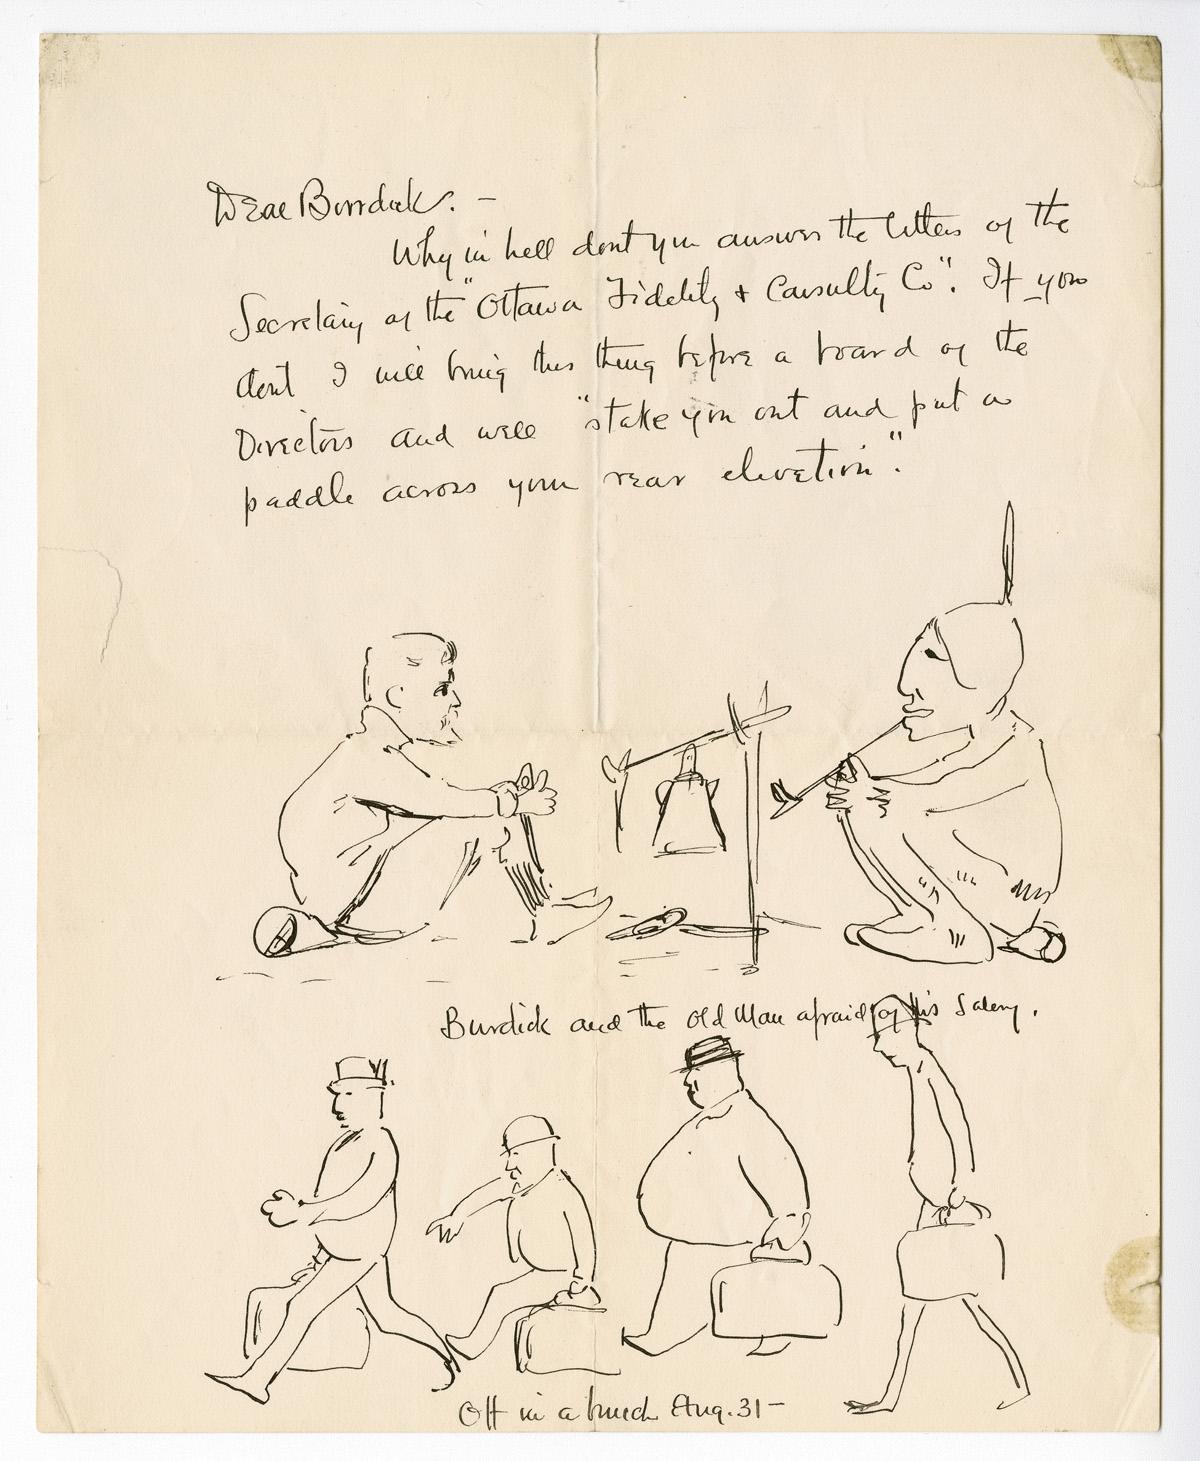 Dear Burrdick. –
Why in hell dont you answer the letters of the
Secretary of the "Ottawa Fidelity + Casulty Co". If you
dont I will bring this thing before a board of the
Directors and well "stake you out and put a
paddle across your rear elevation".
Burdick and the Old Man afraid of his Salery.
Off in a bunch Aug. 31 –